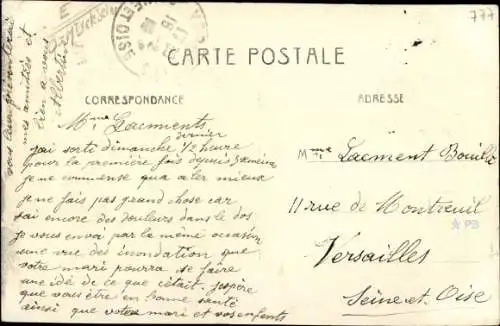 777
CARTE POSTALE
CORRESPONDANCE
ADRESSE
Mme Lacments
j'ai sorte dimanche dernier 1/2 heure
pour la première fois depuis 3 semaine
je ne commense qua aler mieux
je ne fais pas grand chose car
j'ai encore des douleurs dans le dos
je vous envoi par la même occasion
une vue des inondation que
votre mari pourra se faire
une idé de ce que c'était. J'espère
que vous être en bonne santé
ainsi que votre mari et vos enfants
mes amitiés et
bien a vous
Albertine
Mme Lacment Bouille
11 rue de Montreuil
PB
Versailles
Seine et Oise
ET OISE